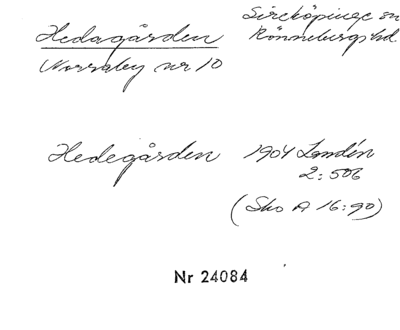 Hedagården
Norraby nr 10
Sireköpinge sn
Rönnebergs hd.
Hedegården
1904 Lundén
2:506
(Sko A 16:90)
Nr 24084